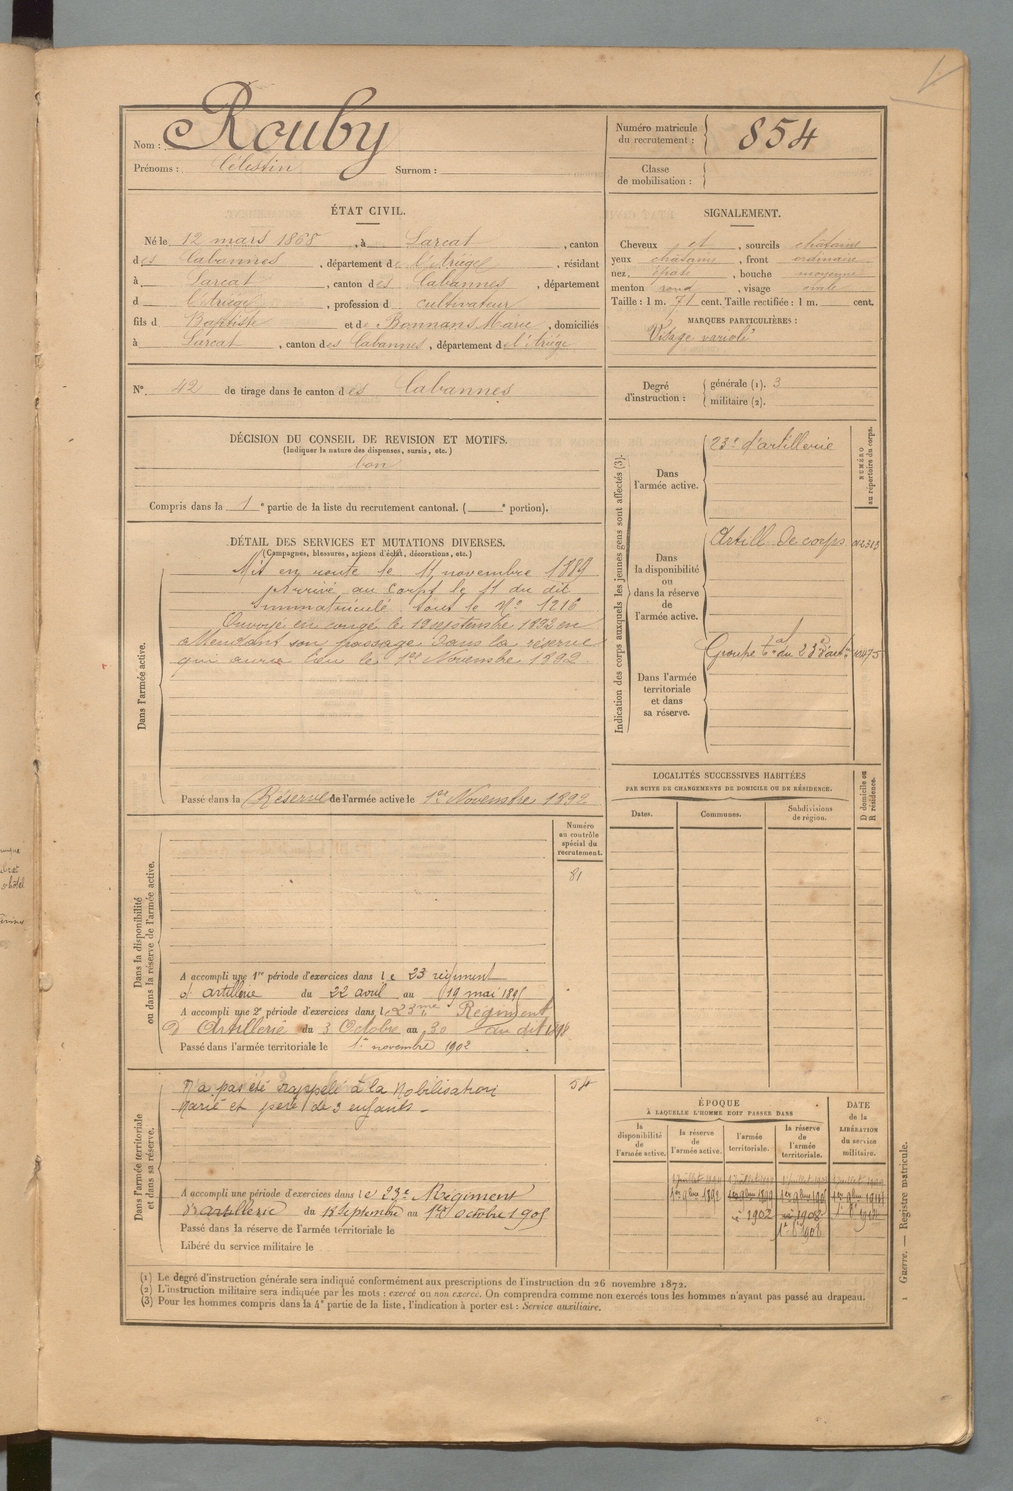 Nom : Rouby
Prénoms : Célestin Surnom :
Numéro matricule du recrutement : 854
Classe de mobilisation :
ÉTAT CIVIL.
Né le 12 mars 1868, à Larcat, canton
des Cabannes, département de l'Ariége, résidant
à Larcat, canton des Cabannes, département
d L'Ariége, profession d cultivateur
fils d Baptiste et de Bonnans Marie, domiciliés
à Larcat, canton des Cabannes, département de l'Ariége
SIGNALEMENT.
Cheveux et, sourcils châtains
yeux châtains, front ordinaire
nez épaté, bouche moyenne
menton rond, visage ovale
Taille : 1 m. 71 cent. Taille rectifiée : 1 m. cent.
MARQUES PARTICULIÈRES :
Visage variolé
N° 42 de tirage dans le canton des Cabannes
Degré d'instruction : générale (1). 3
militaire (2).
DÉCISION DU CONSEIL DE REVISION ET MOTIFS.
(Indiquer la nature des dispenses, sursis, etc.)
bon
Compris dans la 1e partie de la liste du recrutement cantonal. ( e portion).
DÉTAIL DES SERVICES ET MUTATIONS DIVERSES.
(Campagnes, blessures, actions d'éclat, décorations, etc.)
Dans l'armée active.
Mis en route le 11 novembre 1889
Arrivé au corps le 11 du dit
Immatriculé sous le N° 1216
Envoyé en congé le 19 septembre 1892 en
attendant son passage dans la réserve
qui aura lieu le 1er Novembre 1892
Passé dans la Réserve de l'armée active le 1er Novembre 1892
Indication des corps auxquels les jeunes gens sont affectés (3).
NUMÉRO au répertoire du corps.
Dans l'armée active.
23e d'artillerie
Dans la disponibilité ou dans la réserve de l'armée active.
Artill. de corps
Dans l'armée territoriale et dans sa réserve.
Groupe du 23e d'art.
LOCALITÉS SUCCESSIVES HABITÉES
PAR SUITE DE CHANGEMENTS DE DOMICILE OU DE RÉSIDENCE.
D domicile ou R résidence.
Dates. Communes. Subdivisions de région.
Dans la disponibilité ou dans la réserve de l'armée active.
Numéro au contrôle spécial du recrutement.
81
A accompli une 1re période d'exercices dans le 23 régiment
d'artillerie du 22 avril au 19 mai
A accompli une 2e période d'exercices dans le 23me Régiment
D'Artillerie du 3 Octobre au 30 du dit 1898
Passé dans l'armée territoriale le 1er novembre 1902
Dans l'armée territoriale et dans sa réserve.
54
N'a pas été rappelé à la Mobilisation
Marié et père de 3 enfants
A accompli une période d'exercices dans le 23e Régiment
d'artillerie du Septembre au 1er octobre 1905
Passé dans la réserve de l'armée territoriale le
Libéré du service militaire le
ÉPOQUE
À LAQUELLE L'HOMME DOIT PASSER DANS
DATE de la LIBÉRATION du service militaire.
la disponibilité de l'armée active.
la réserve de l'armée active.
l'armée territoriale.
la réserve de l'armée territoriale.
1er 9bre 1892
1902
1908
(1) Le degré d'instruction générale sera indiqué conformément aux prescriptions de l'instruction du 26 novembre 1872.
(2) L'instruction militaire sera indiquée par les mots : exercé ou non exercé. On comprendra comme non exercés tous les hommes n'ayant pas passé au drapeau.
(3) Pour les hommes compris dans la 4e partie de la liste, l'indication à porter est : Service auxiliaire.
Guerre. — Registre matricule.